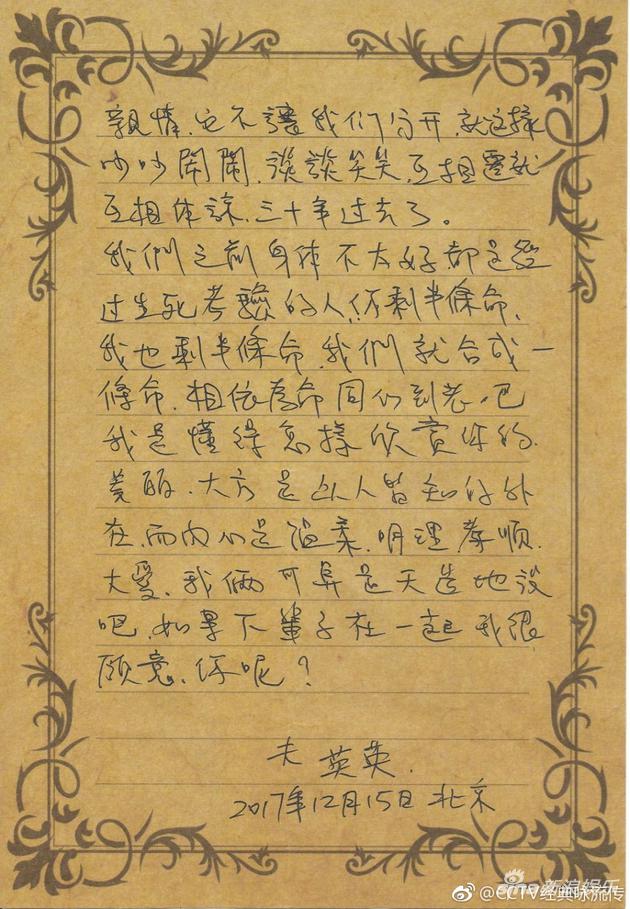 親情,它不讓我们分开,就这樣
吵吵鬧鬧、談談笑笑、互相遷就
互相体諒、三十年过去了。
我們之前身体不太好都是經
过生死考驗的人,你剩半條命、
我也剩半條命、我們就合成一
條命、相依為命 同 到老、吧
我是懂得怎樣欣賞你的、
美丽、大方是 人皆知的外
在,而内心是温柔、明理孝順、
大愛、我俩可算是天造地設
吧、如果下輩子在一起我很
願意、你呢?
夫 英英.
2017年12月15日 北京
sina新浪娱乐
@CCTV经典咏流传